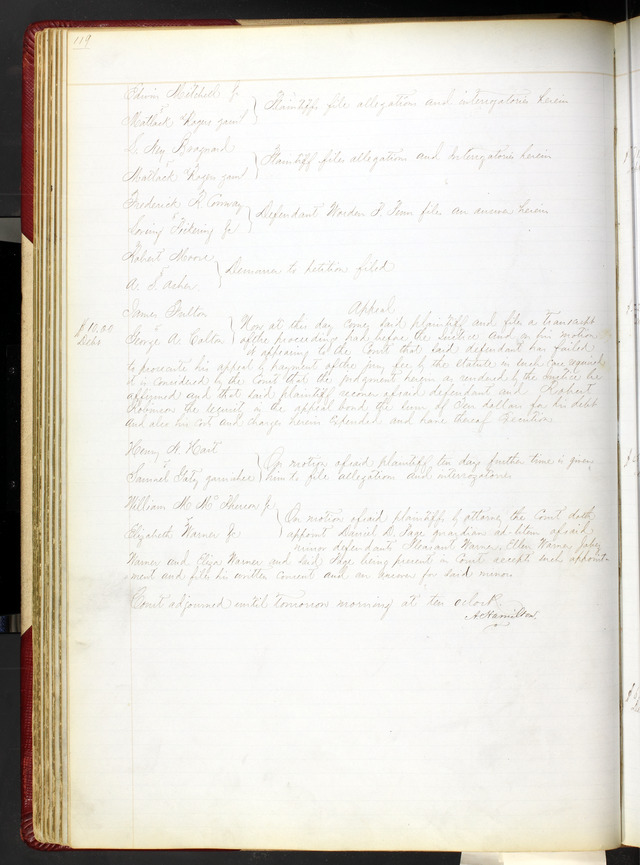 119
Edwin Mitchell Jr
vs } Plaintiffs file allegations and interrogatories herein
Matlack &Rogers garnt
vs } Plaintiff files allegations and Interrogatories herein
Matlack &Rogers garnt
Frederick R Conway
vs } Defendant Worden F. files an answer herein
Loving Pickering Jr
Robert Moore
vs } Demurrer to petition filed
A. S. Asher
James Fulton Appeal
$10.00 vs } Now at this day comes said plaintiff and files a transcript
Debt George A. Colton of the proceedings had before the Justice and on his motion
it appearing to the Court that said defendant has failed
to prosecute his appeal by payment of the jury fee by the statute in such case required
it is considered by the Court that the judgment herein as rendered by the Justice be
affirmed and that said plaintiff recover of said defendant and Robert
Robinson the security in the appeal bond the sum of Ten dollars for his debt
and also his cost and charges herein expended and have thereof Execution
Henry N. Hart
vs } On motion of said plaintiff ten days further time is given
Samuel Gaty garnishee him to file allegations and interrogatories
William M McPherson Jr
vs } On motion of said plaintiffs by attorney the Court doth
Elizabeth Warner Jr appoint Daniel D. Page guardian ad-litem of said
minor defendants Pleasant Warner, Ellen Warner,
Warner and Eliza Warner and said Page being present in Court accepts such appoint-
-ment and files his written consent and an answer for said minors
Court adjourned until tomorrow morning at ten oclock
A Hamilton